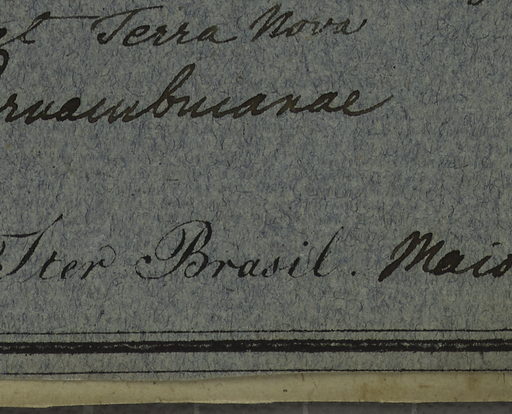 et Terra Nova
ernambucanae
Iter Brasil. Maio